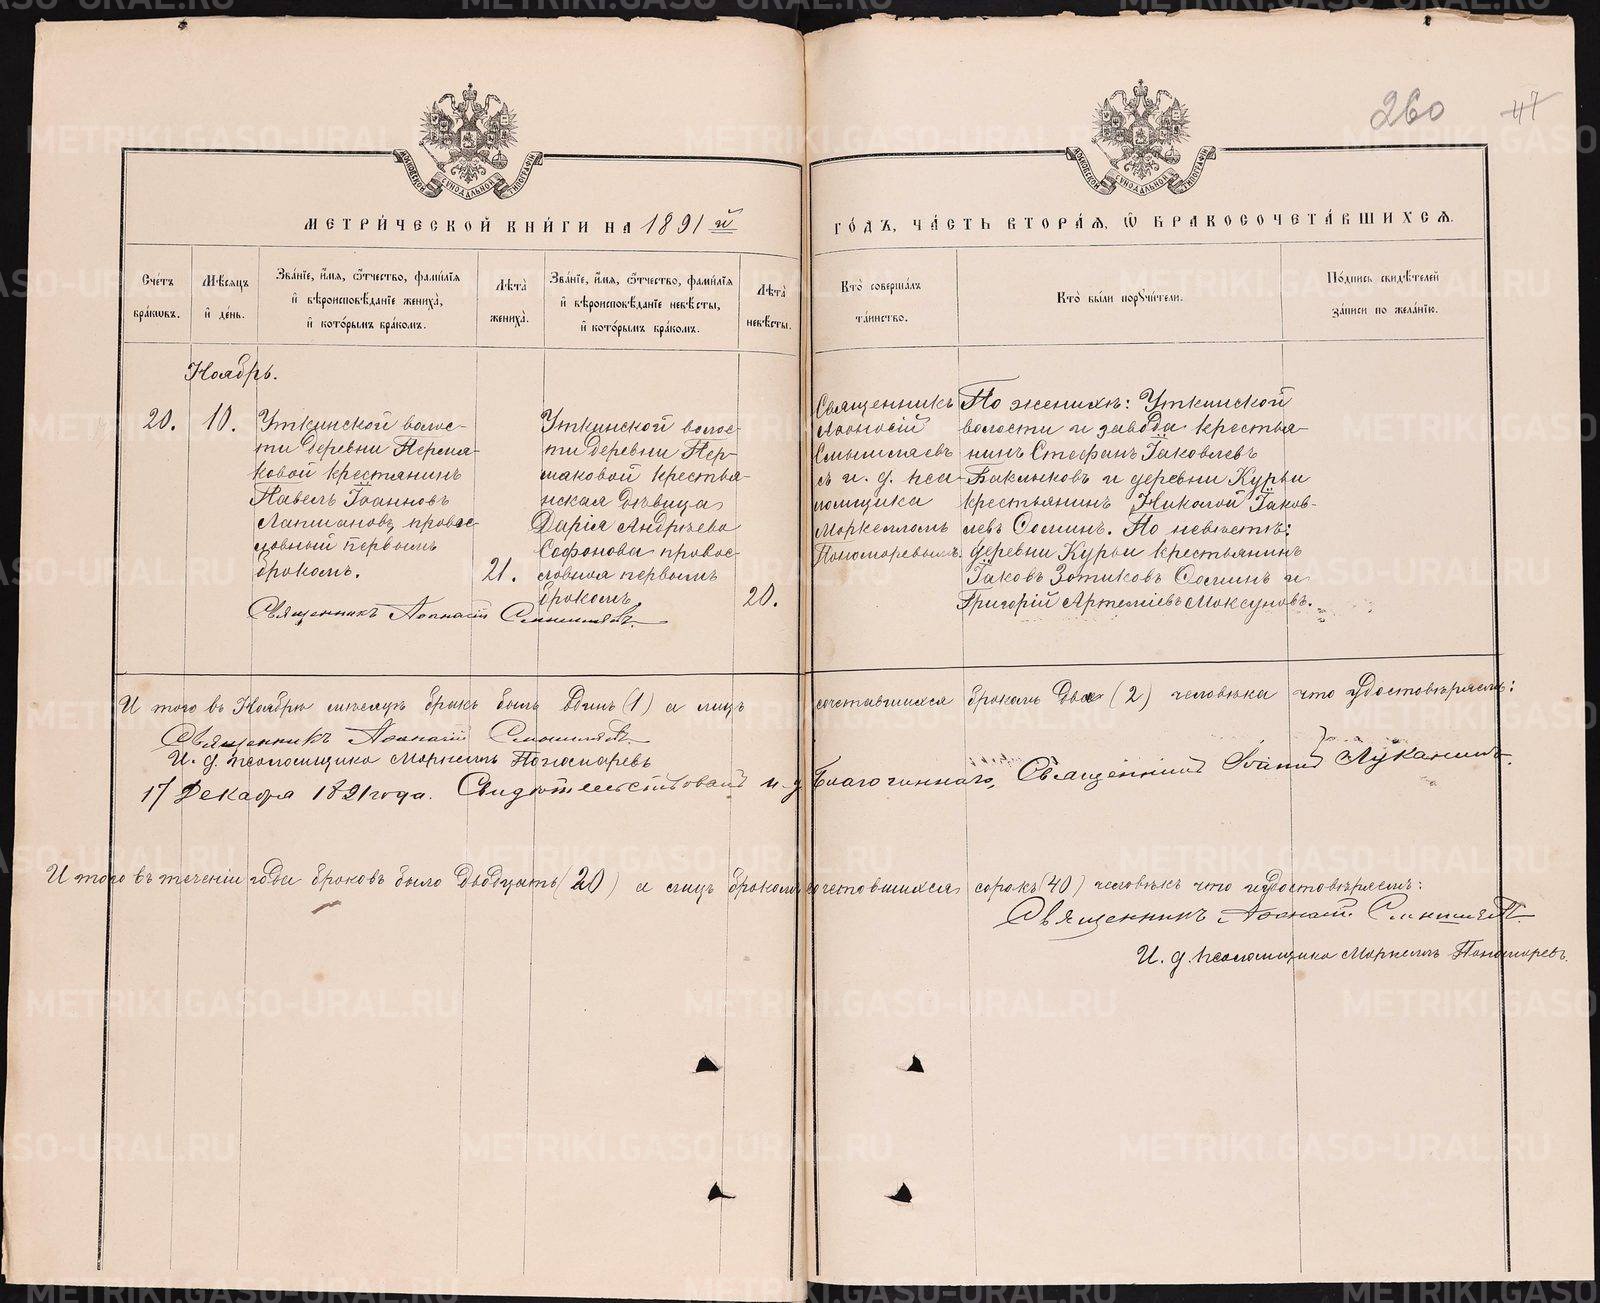 260 47
МОСКОВСКОЙ СѴНОДАЛЬНОЙ ТИПОГРАФІИ
МОСКОВСКОЙ СѴНОДАЛЬНОЙ ТИПОГРАФІИ
МЕТРИ́ЧЕСКОЙ КНИ́ГИ НА 1891 й
ГО́ДЪ, ЧА́СТЬ ВТОРА́Я, Ѽ БРАКОСОЧЕТА́ВШИХСЯ.
Сче́тъ бра́ковъ.
Мѣ́сяцъ и҆ де́нь.
Зва́нїе, и҆́мя, ѻ҆́тчество, фами́лїя и҆ вѣроисповѣ́данїе жениха̀, и҆ кото́рымъ бра́комъ.
Лѣ́та̀ жениха̀.
Зва́нїе, и҆́мя, ѻ҆́тчество, фами́лїя и҆ вѣроисповѣ́данїе невѣ́сты, и҆ кото́рымъ бра́комъ.
Лѣ́та̀ невѣ́сты.
Кто̀ соверша́лъ та́инство.
Кто̀ бы́ли порꙋчи́тели.
По́дпись свидѣ́телей за́писи по жела́нїю.
Ноябрь.
20.
10.
Уткинской волос-
ти деревни Перма-
ковой крестьянинъ
Павелъ Іоанновъ
православ-
ловный первымъ
бракомъ.
21.
Уткинской волос-
ти деревни Пер-
маковой крестья-
нская дѣвица
Дарія Андреева
Сафонова правос-
лавная первымъ
бракомъ.
20.
Священникъ Аѳанасій Смышляевъ.
Священникъ
Аѳанасій
Смышляевъ
съ и. д. пса-
ломщика
Маркелломъ
Пономаревымъ.
По женихѣ: Уткинской
волости и завода крестья-
нинъ Стефанъ Іаковлевъ
и деревни Курьи
крестьянинъ Николай Іаков-
левъ Соминъ. По невѣстѣ:
деревни Курьи крестьянинъ
Іаковъ Зотиковъ Соминъ и
Григорій Артеміевъ Моксуновъ.
И того въ Ноябрѣ мѣсяцѣ бракъ былъ одинъ (1) а лицъ сочетавшихся бракомъ два (2) человѣка что удостовѣряемъ:
Священникъ Аѳанасій Смышляевъ.
И. д. псаломщика Маркеллъ Пономаревъ
17 Декабря 1891 года. Свидѣтельствовалъ и. д. Благочиннаго, Священникъ Іоаннъ Луканинъ.
И того въ теченіи года браковъ было двадцать (20) а лицъ бракомъ сочетавшихся сорокъ (40) человѣкъ что удостовѣряемъ:
Священникъ Аѳанасій Смышляевъ.
И. д. псаломщика Маркеллъ Пономаревъ.
METRIKI.GASO-URAL.RU